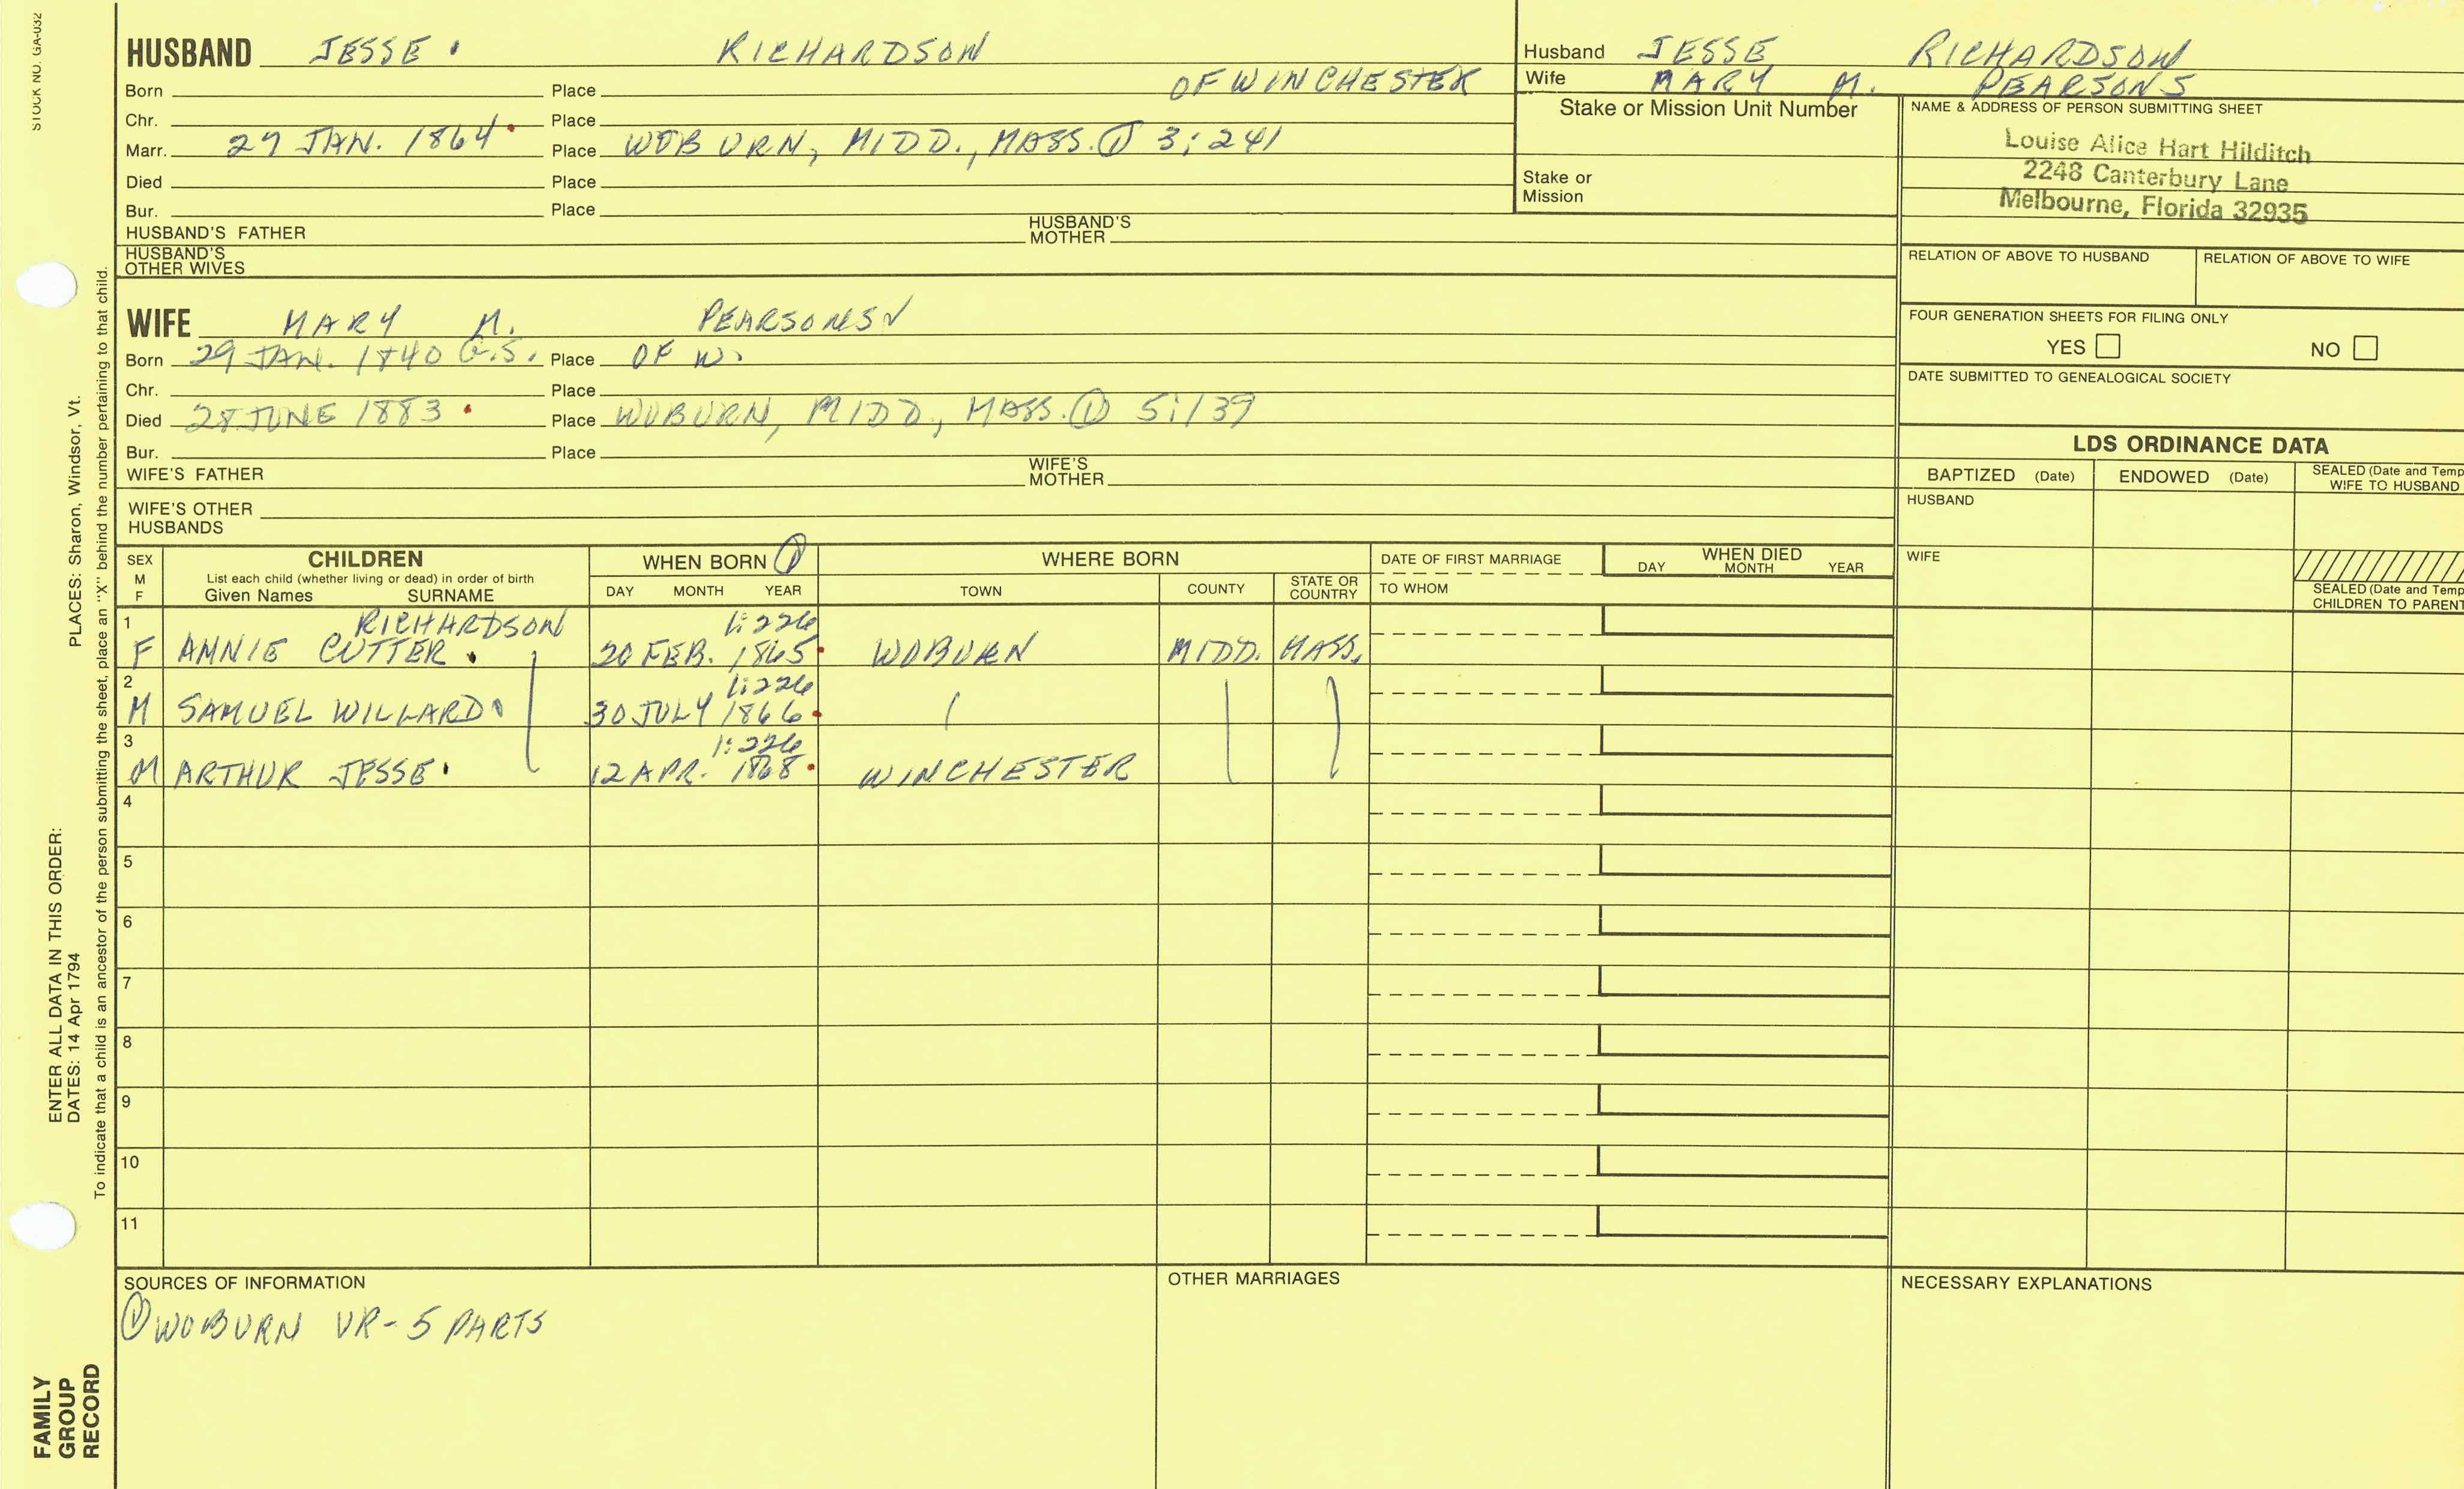 STOCK NO. GA-032
HUSBAND JESSE RICHARDSON
Born Place OF WINCHESTER
Chr. Place
Marr. 27 JAN. 1864 Place WOBURN, MIDD., MASS. ① 3:241
Died Place
Bur. Place
HUSBAND'S FATHER HUSBAND'S MOTHER
HUSBAND'S OTHER WIVES
Husband JESSE RICHARDSON
Wife MARY M. PEARSONS
Stake or Mission Unit Number
Stake or
Mission
NAME & ADDRESS OF PERSON SUBMITTING SHEET
Louise Alice Hart Hilditch
2248 Canterbury Lane
Melbourne, Florida 32935
RELATION OF ABOVE TO HUSBAND RELATION OF ABOVE TO WIFE
WIFE MARY M. PEARSONS ✓
Born 29 JAN. 1840 G.S. Place OF W.
Chr. Place
Died 28 JUNE 1883 Place WOBURN, MIDD., MASS. ① 5:139
Bur. Place
WIFE'S FATHER WIFE'S MOTHER
WIFE'S OTHER
HUSBANDS
FOUR GENERATION SHEETS FOR FILING ONLY
YES NO
DATE SUBMITTED TO GENEALOGICAL SOCIETY
LDS ORDINANCE DATA
BAPTIZED (Date) ENDOWED (Date) SEALED (Date and Temp
WIFE TO HUSBAND
HUSBAND
WIFE
SEALED (Date and Temp
CHILDREN TO PARENT
SEX
M
F
CHILDREN
List each child (whether living or dead) in order of birth
Given Names SURNAME
WHEN BORN ①
DAY MONTH YEAR
WHERE BORN
TOWN COUNTY STATE OR COUNTRY
DATE OF FIRST MARRIAGE
TO WHOM
WHEN DIED
DAY MONTH YEAR
1 RICHARDSON 1:226
F ANNIE CUTTER 20 FEB. 1865 WOBURN MIDD. MASS.
2 1:226
M SAMUEL WILLARD 30 JULY 1866
3 1:226
M ARTHUR JESSE 12 APR. 1868 WINCHESTER
4
5
6
7
8
9
10
11
SOURCES OF INFORMATION
① WOBURN VR - 5 PARTS
OTHER MARRIAGES
NECESSARY EXPLANATIONS
ENTER ALL DATA IN THIS ORDER:
DATES: 14 Apr 1794 PLACES: Sharon, Windsor, Vt.
To indicate that a child is an ancestor of the person submitting the sheet, place an "X" behind the number pertaining to that child.
FAMILY
GROUP
RECORD